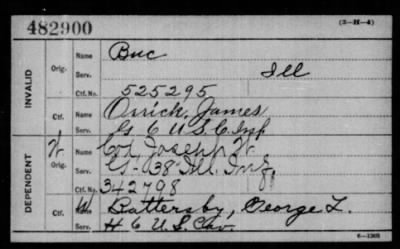 482900 (3-H-4)
INVALID
Orig. Name Buc
Serv. Ill
Ctf. No. 525295
Ctf. Name Orrick, James
Serv. G 6 U.S.C. Inf
DEPENDENT
W. Orig. Name Cox, Joseph W.
Serv. G-138" Ill. Inf.
Ctf. No. 342798
Ctf. Name Battersby, George L.
Serv. H 6 U.S. Cav.